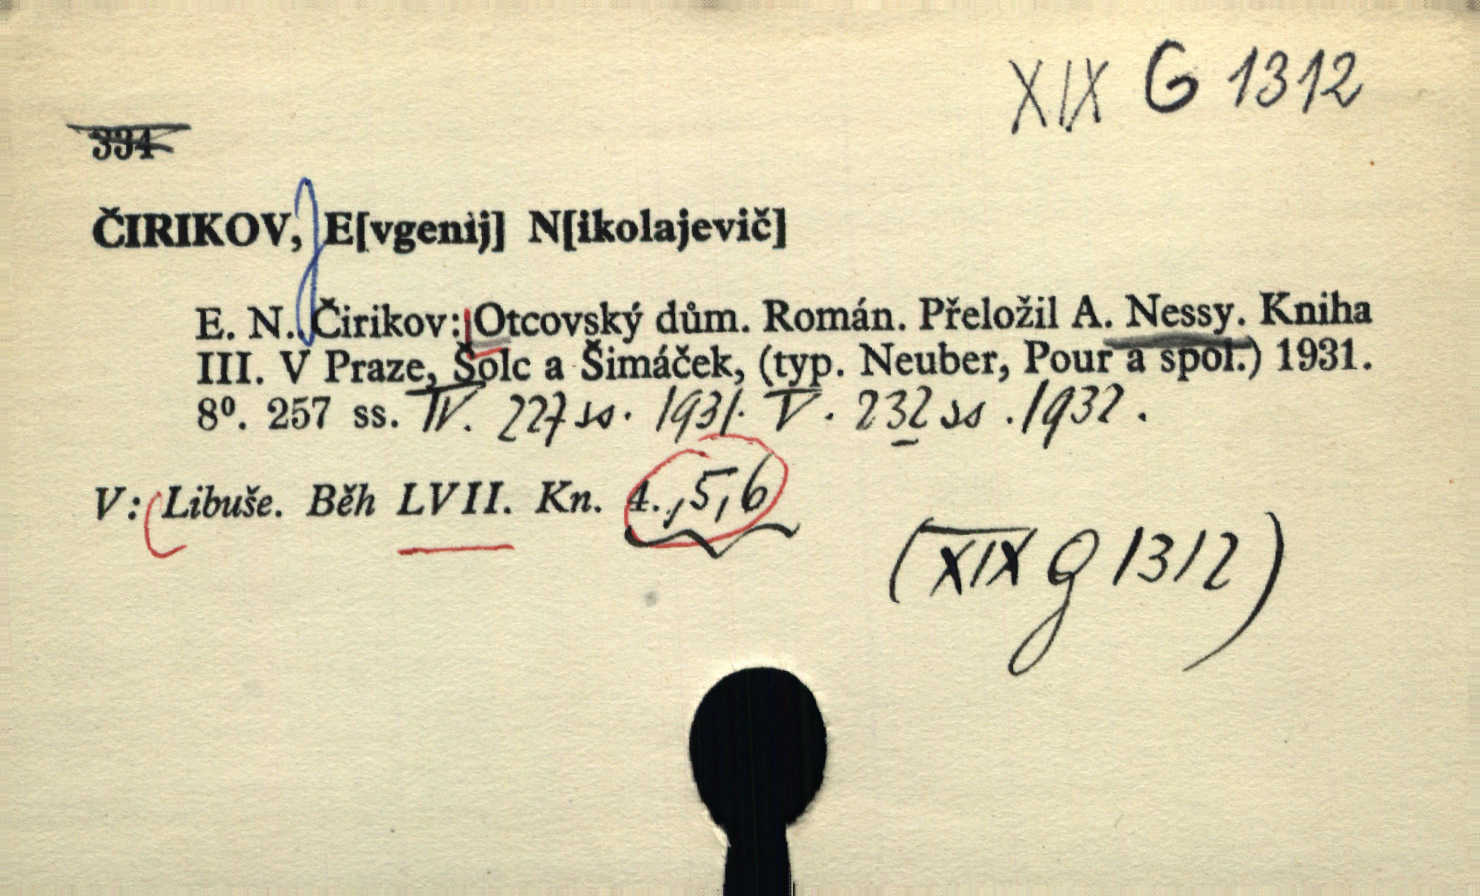 XIX G 1312
334
ČIRIKOV, E[vgenij] N[ikolajevič]
E. N. Čirikov: Otcovský dům. Román. Přeložil A. Nessy. Kniha
III. V Praze, Šolc a Šimáček, (typ. Neuber, Pour a spol.) 1931.
8⁰. 257 ss. IV. 227 ss. 1931. V. 232 ss. 1932.
V: Libuše. Běh LVII. Kn. 4., 5, 6
(XIX G 1312)